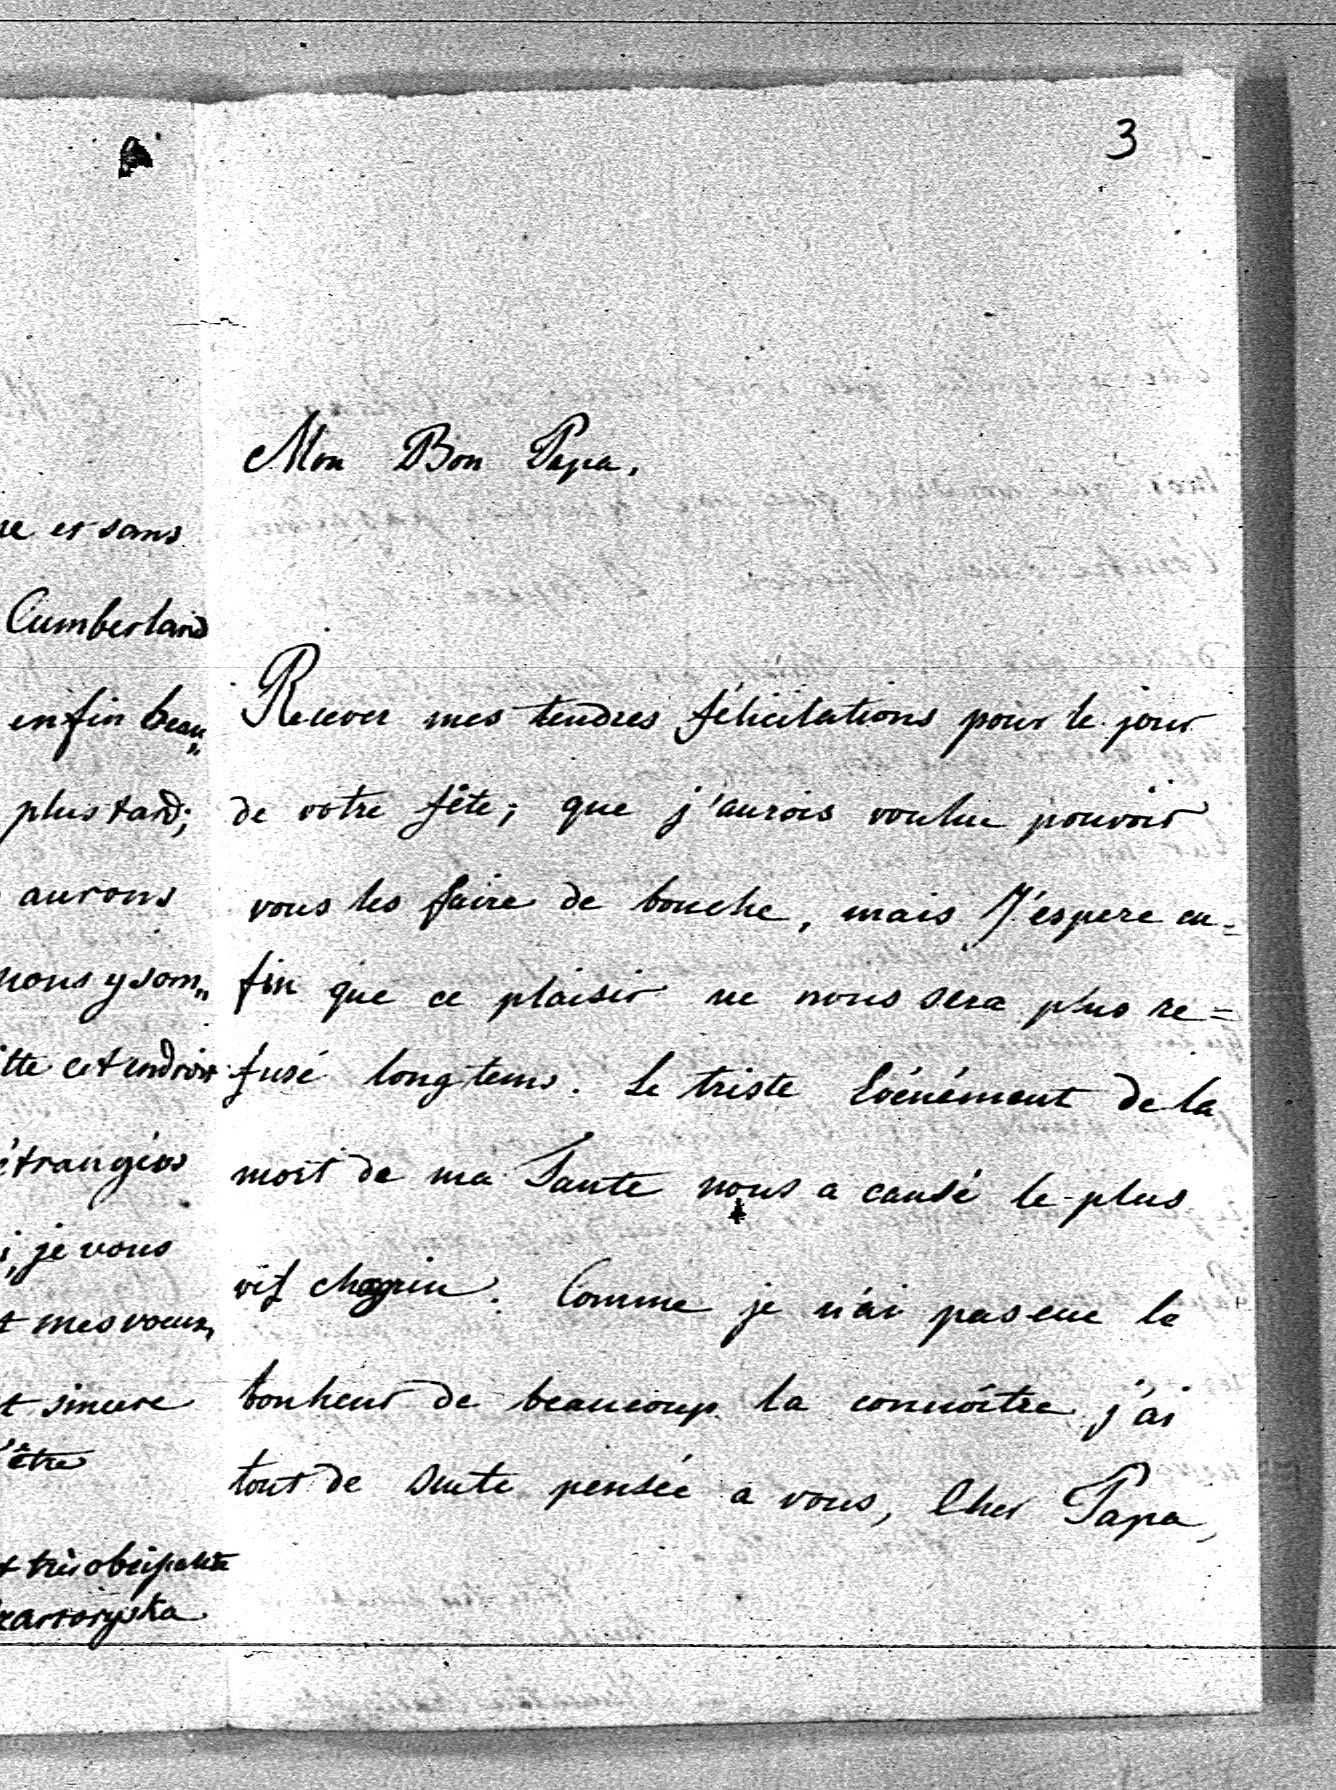 3
ue et sans
Cumberland
enfin beau„
plus tard;
aurons
nous y som„
itte cet endroit
étrangers
i, je vous
t mes voeux,
t sincere
d'être
t très obéissante
zartoryska
Mon Bon Papa,
Recever mes tendres félicitations pour le jour
de votre fête; que j'aurois voulue pouvoir
vous les faire de bouche, mais J'espere en=
fin que ce plaisir ne nous sera plus re=
fusé longtems. Le triste Evénément de la
mort de ma Tante nous a causé le plus
vif chagrin. Comme je n'ai pas eue le
bonheur de beaucoup la connoître j'ai
tout de suite pensée a vous, Cher Papa,